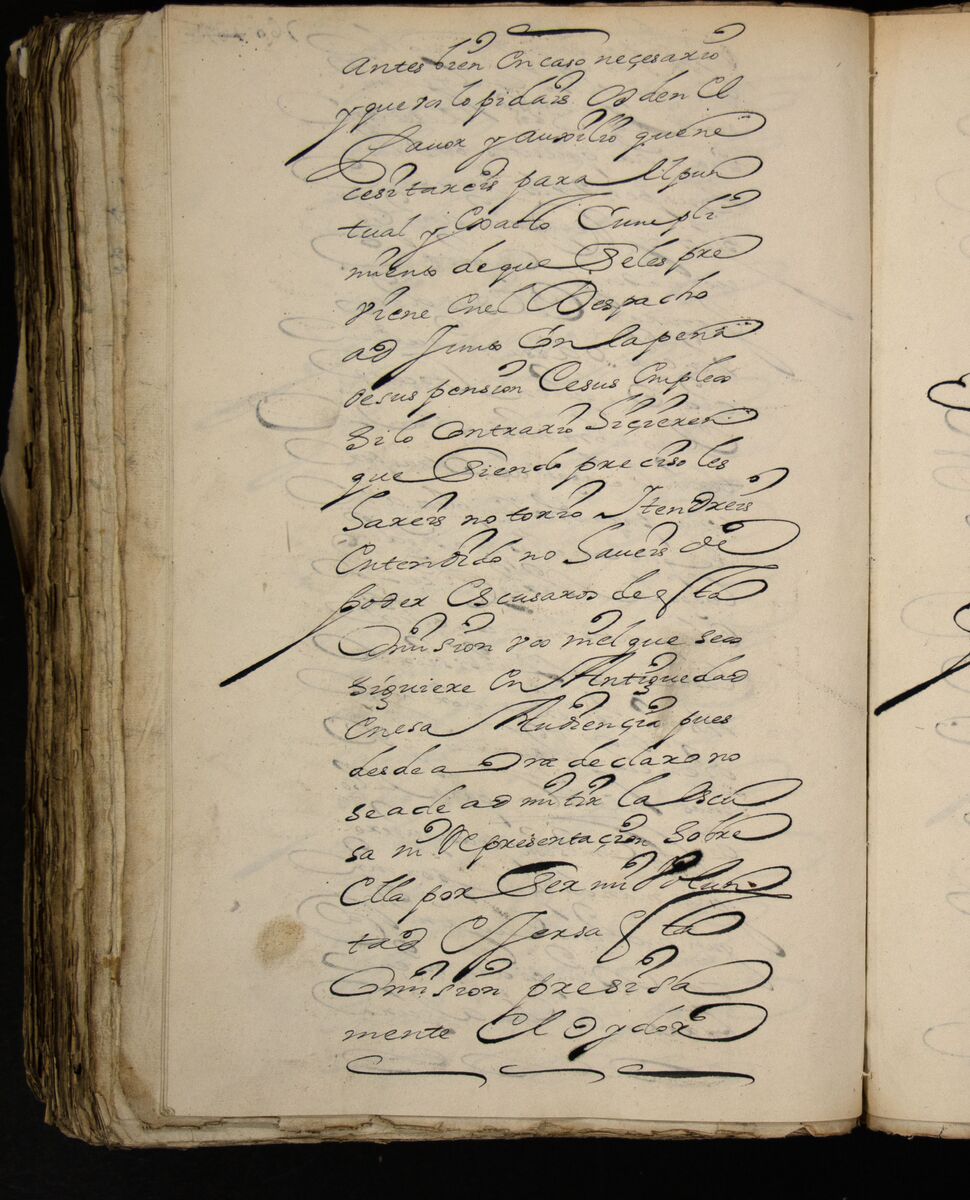 antes bien en caso neçesario
y que ia lo pidais os den el
favor y auxilio que ne
cesitareis para el pun
tual y exacto cumpli
miento de que se les pre
viene en el Despacho
adjunto en la pena
de suspension de sus empleos
si lo contrario hiçieren
que siendo preciso les
hareis notorio y tendreis
entendido no haveis de
poder escusaros de esta
Comision vos ni el que seos
siguiere en Antiguedad
en esa Audiençia pues
desde aora declaro no
se a de admitir la escu
sa ni Representaçion sobre
ella por ser mi Volun
tad exersa esta
Comision presisa
mente el oydor